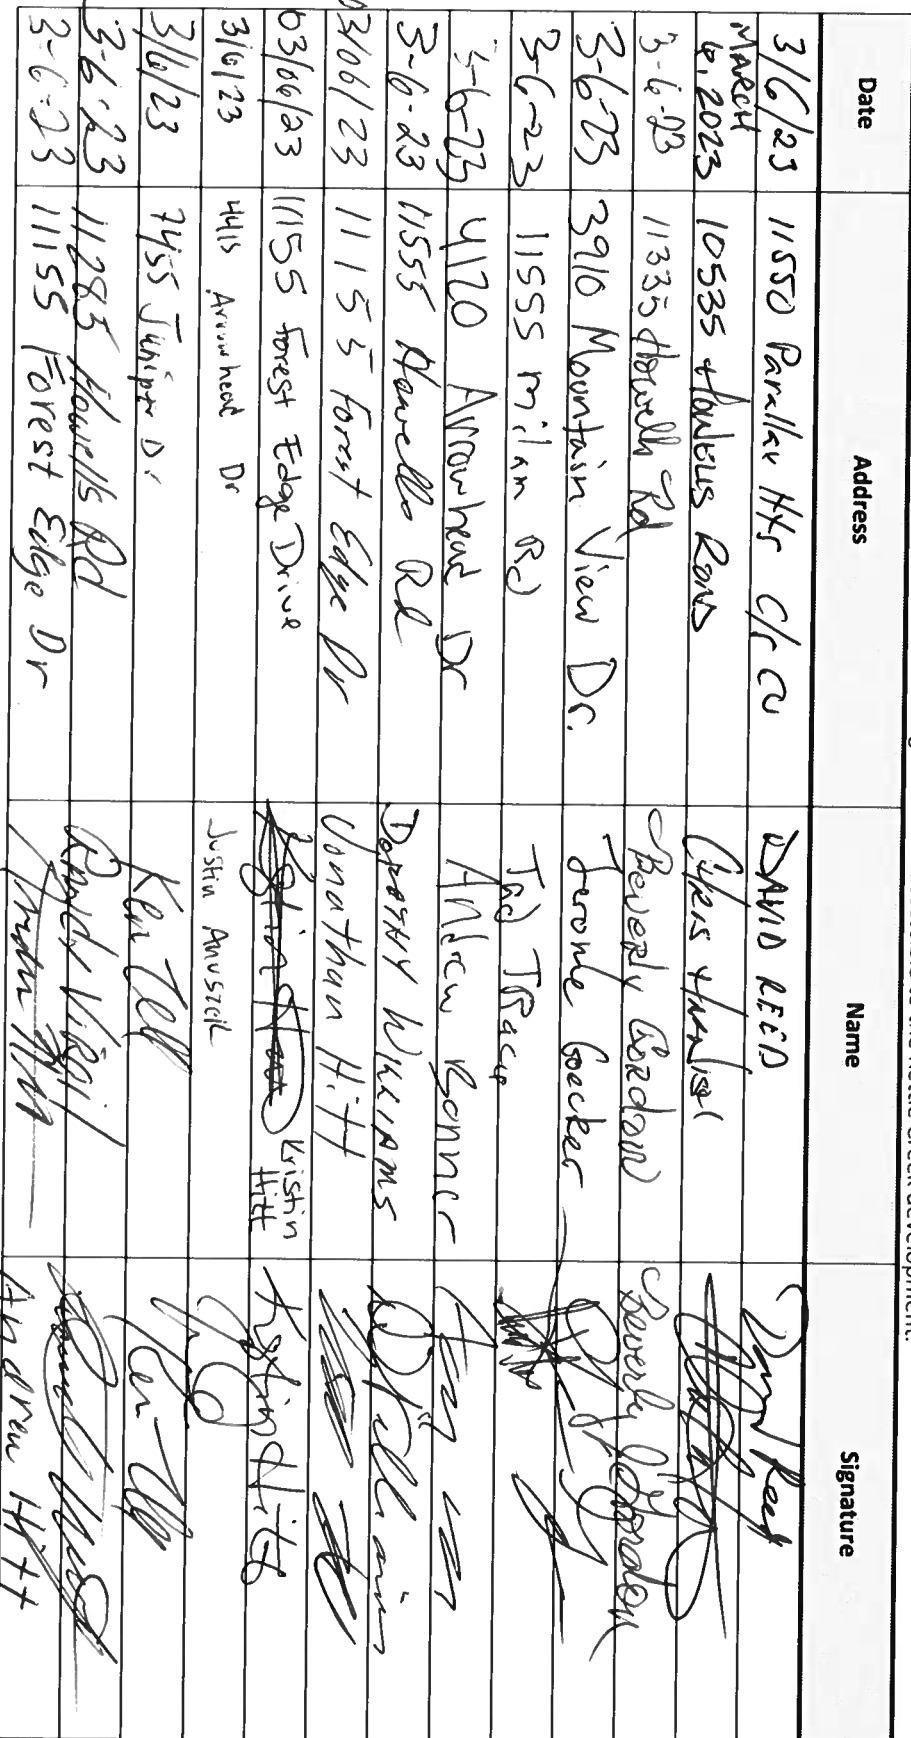 Creek development.
Date Address Name Signature
3/6/23 11550 Parallax Hts C/S CO DAVID REED David Reed
MARCH 6, 2023 10535 Howells Road Chris
3-6-23 11335 Howells Rd Beverly Gordon Beverly Gordon
3-6-23 3910 Mountain View Dr. Jerome Goecker
3-6-23 11555 milam Rd Tad Tracy
3-6-23 4120 Arrowhead Dr Andrew Bonner
3-6-23 11555 Howells Rd Dorothy Williams D Williams
03/06/23 11155 Forest Edge Dr Jonathan Hitt
03/06/23 11155 Forest Edge Drive Kristin Hitt Kristin Hitt
3/6/23 4415 Arrowhead Dr Justin Anuszcik
3/6/23 7455 Juniper Dr Ken
3-6-23 11285 Howells Rd Virgil
3-6-23 11155 Forest Edge Dr Andrew Hitt